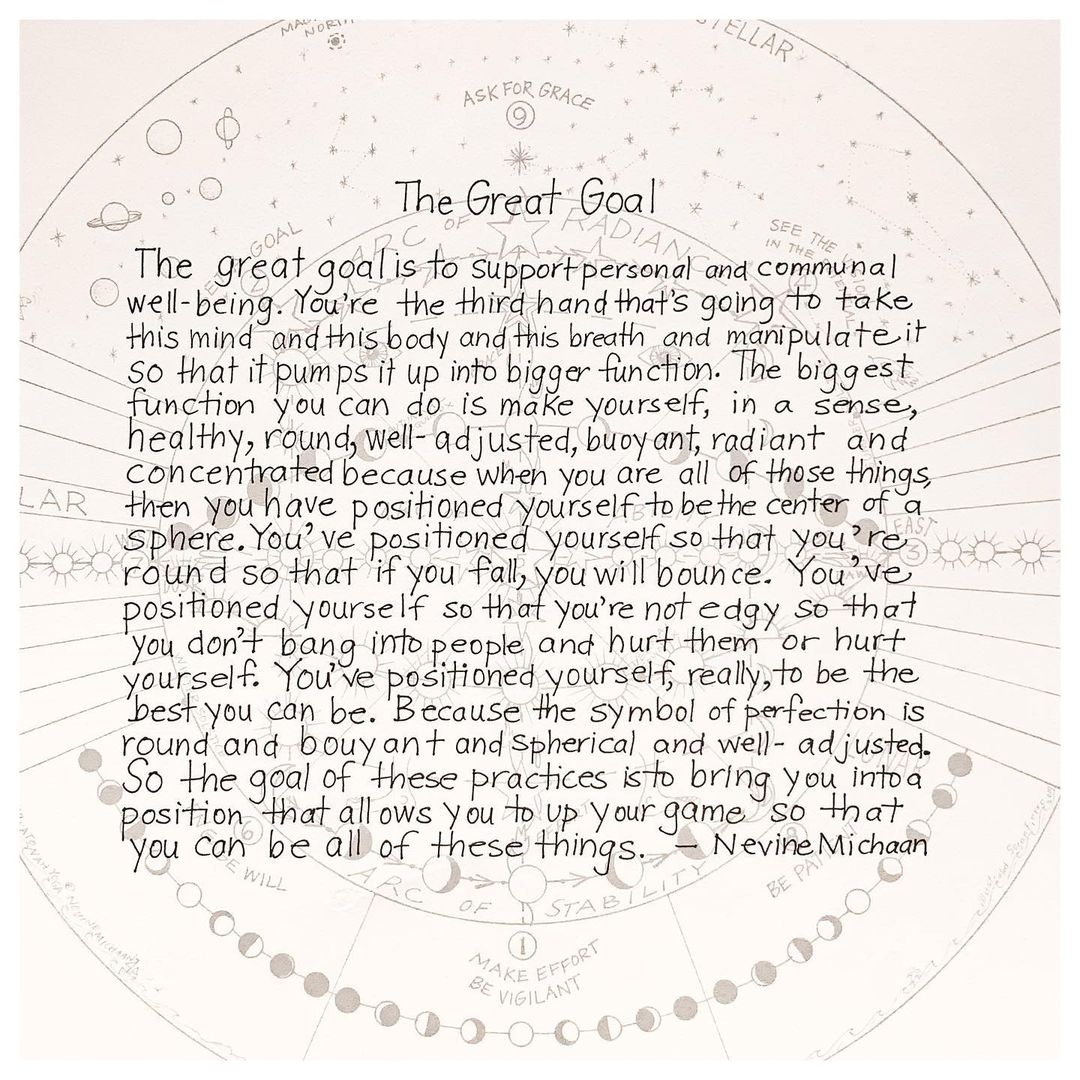 MA
NORTH
STELLAR
ASK FOR GRACE
9
The Great Goal
GOAL
ARC OF RADIANC
SEE THE
IN THE
The great goal is to support personal and communal
well-being. You're the third hand that's going to take
this mind and this body and this breath and manipulate it
so that it pumps it up into bigger function. The biggest
function you can do is make yourself, in a sense,
healthy, round, well-adjusted, buoyant, radiant and
concentrated because when you are all of those things,
then you have positioned yourself to be the center of a
LAR
EAST
sphere. You've positioned yourself so that you're
3
round so that if you fall, you will bounce. You've
positioned yourself so that you're not edgy so that
you don't bang into people and hurt them or hurt
yourself. You've positioned yourself, really, to be the
best you can be. Because the symbol of perfection is
round and bouyant and spherical and well-adjusted.
So the goal of these practices is to bring you into a
position that allows you to up your game so that
you can be all of these things. — Nevine Michaan
6
WILL
8
BE PA
ARC OF STABILITY
1
MAKE EFFORT
BE VIGILANT